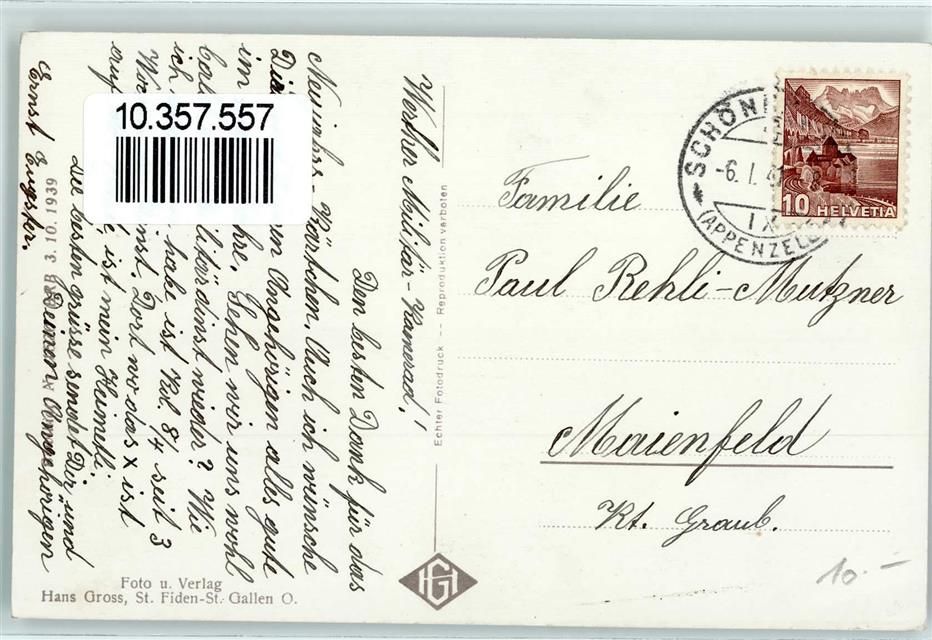 10.357.557
Werther Militär-Kamerad!
Den besten Dank für das
Neujahrs-Kärtchen. Auch ich wünsche
Dir Angehörigen alles gute
im Jahre. Sehen wir uns wohl
wieder? Wie
ich habe ist Kol. 84 seit 3
Dort wo das x ist
auf ist mein Heimetli.
die besten Grüsse sendet Dir und
Deinen Angehörigen
Ernst Eugster.
3. 10. 1939
Echter Fotodruck -- Reproduktion verboten
Foto u. Verlag
Hans Gross, St. Fiden-St. Gallen O.
HG
SCHÖN
-6. I. 4
IX
(APPENZELL
10 HELVETIA
Familie
Paul Rehli-Mutzner
Maienfeld
Kt. Graub.
10.-